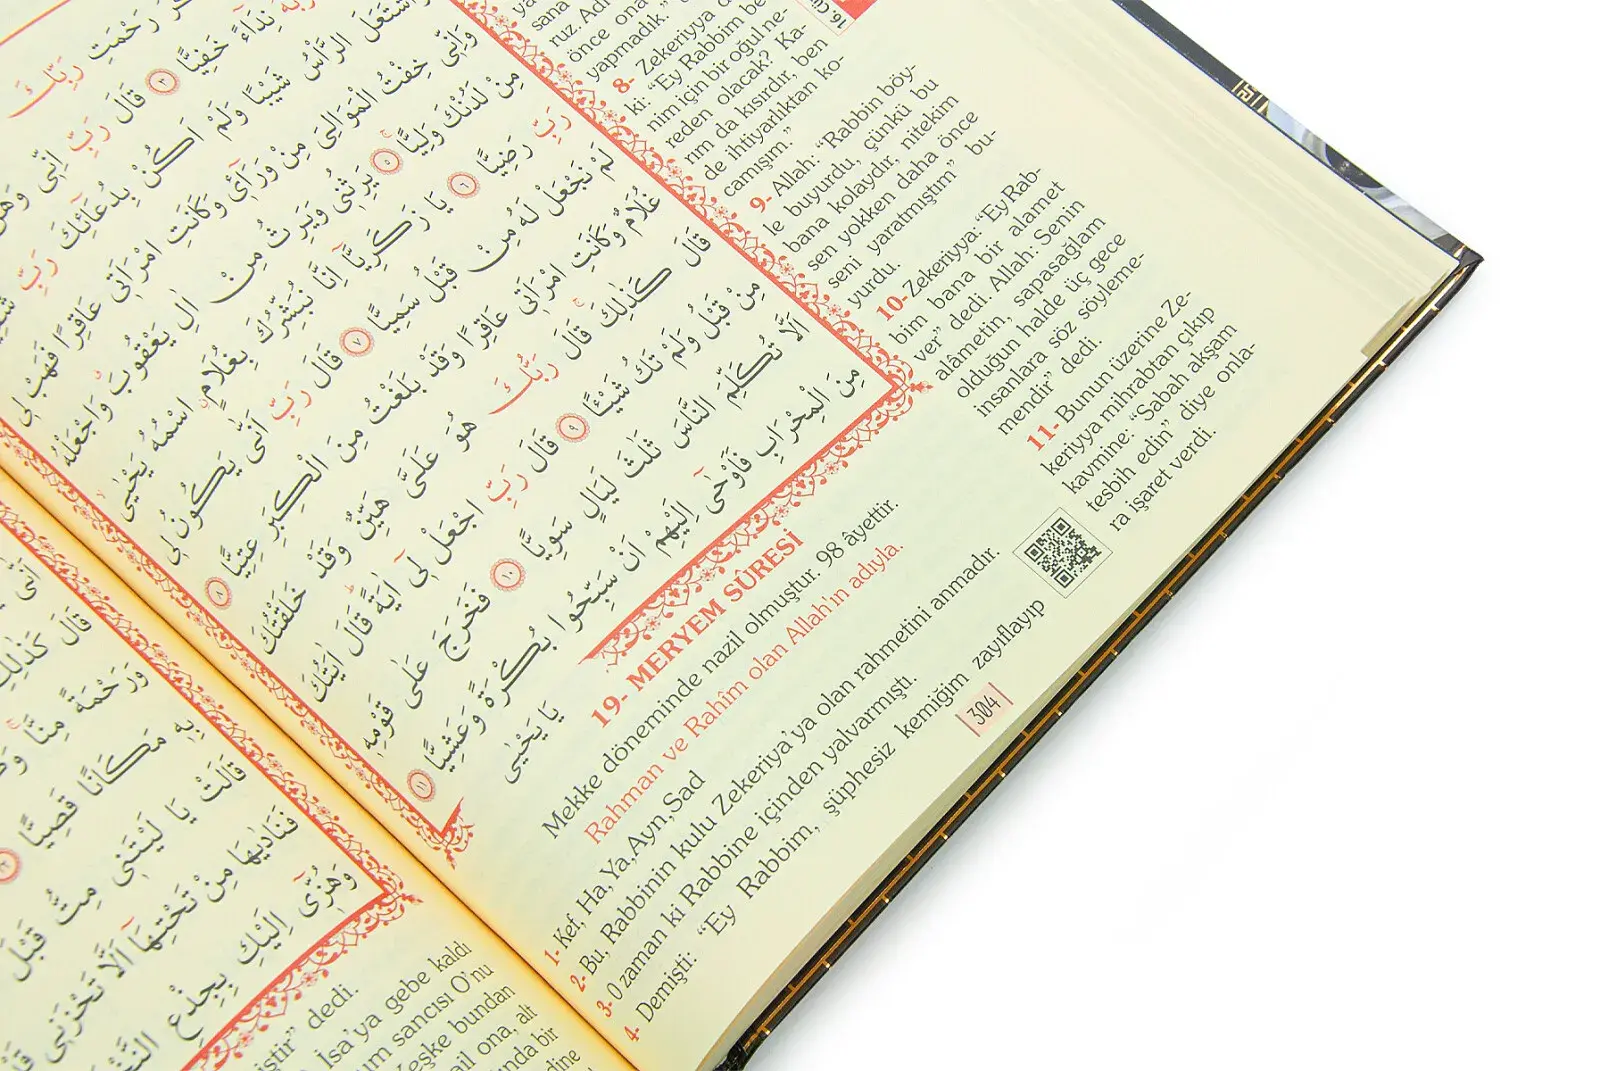 رَحْمَتِ رَبِّكَ
نِدَٓاءً خَفِيًّا ﴿٣﴾ قَالَ رَبِّ اِنّ۪ي وَهَنَ
وَاشْتَعَلَ الرَّأْسُ شَيْبًا وَلَمْ اَكُنْ بِدُعَٓائِكَ رَبِّ
وَاِنّ۪ي خِفْتُ الْمَوَالِيَ مِنْ وَرَٓائ۪ي وَكَانَتِ امْرَاَت۪ي عَاقِرًا فَهَبْ ل۪ي
مِنْ لَدُنْكَ وَلِيًّا ﴿٥﴾ يَرِثُن۪ي وَيَرِثُ مِنْ اٰلِ يَعْقُوبَ وَاجْعَلْهُ
رَبِّ رَضِيًّا ﴿٦﴾ يَا زَكَرِيَّٓا اِنَّا نُبَشِّرُكَ بِغُلَامٍ اسْمُهُ يَحْيٰى
لَمْ نَجْعَلْ لَهُ مِنْ قَبْلُ سَمِيًّا ﴿٧﴾ قَالَ رَبِّ اَنّٰى يَكُونُ ل۪ي
غُلَامٌ وَكَانَتِ امْرَاَت۪ي عَاقِرًا وَقَدْ بَلَغْتُ مِنَ الْكِبَرِ عِتِيًّا ﴿٨﴾
قَالَ كَذٰلِكَ قَالَ رَبُّكَ هُوَ عَلَيَّ هَيِّنٌ وَقَدْ خَلَقْتُكَ
مِنْ قَبْلُ وَلَمْ تَكُ شَيْـًٔا ﴿٩﴾ قَالَ رَبِّ اجْعَلْ ل۪ٓي اٰيَةً قَالَ اٰيَتُكَ
اَلَّا تُكَلِّمَ النَّاسَ ثَلٰثَ لَيَالٍ سَوِيًّا ﴿١٠﴾ فَخَرَجَ عَلٰى قَوْمِه۪
مِنَ الْمِحْرَابِ فَاَوْحٰٓى اِلَيْهِمْ اَنْ سَبِّحُوا بُكْرَةً وَعَشِيًّا ﴿١١﴾
يَا يَحْيٰى
19- MERYEM SÛRESİ
Mekke döneminde nazil olmuştur. 98 âyettir.
Rahman ve Rahîm olan Allah'ın adıyla.
1- Kef, Ha, Ya, Ayn, Sad
2- Bu, Rabbinin kulu Zekeriya'ya olan rahmetini anmadır.
3- O zaman ki Rabbine içinden yalvarmıştı.
4- Demişti: "Ey Rabbim, şüphesiz kemiğim zayıflayıp
304
16. Cü
sana
ruz. Adı
önce ona
yapmadık."
8- Zekeriyya d
ki: "Ey Rabbim be
nim için bir oğul ne-
reden olacak? Ka-
rım da kısırdır, ben
de ihtiyarlıktan ko-
camışım."
9- Allah: "Rabbin böy-
le buyurdu, çünkü bu
bana kolaydır, nitekim
sen yokken daha önce
seni yaratmıştım" bu-
yurdu.
10- Zekeriyya: "Ey Rab-
bim bana bir alamet
ver" dedi. Allah: Senin
alâmetin, sapasağlam
olduğun halde üç gece
insanlara söz söyleme-
mendir" dedi.
11- Bunun üzerine Ze-
keriyya mihrabtan çıkıp
kavmine: "Sabah akşam
tesbih edin" diye onla-
ra işaret verdi.
قَالَ كَذٰلِكِ
وَرَحْمَةً مِنَّا
بِه۪ مَكَانًا قَصِيًّا
قَالَتْ يَا لَيْتَن۪ي مِتُّ قَبْلَ
فَنَادٰيهَا مِنْ تَحْتِهَٓا اَلَّا تَحْزَن۪ي قَدْ
وَهُزّ۪ٓي اِلَيْكِ بِجِذْعِ
iştir" dedi.
İsa'ya gebe kaldı
um sancısı O'nu
Keşke bundan
ail ona, alt
ında bir
dine